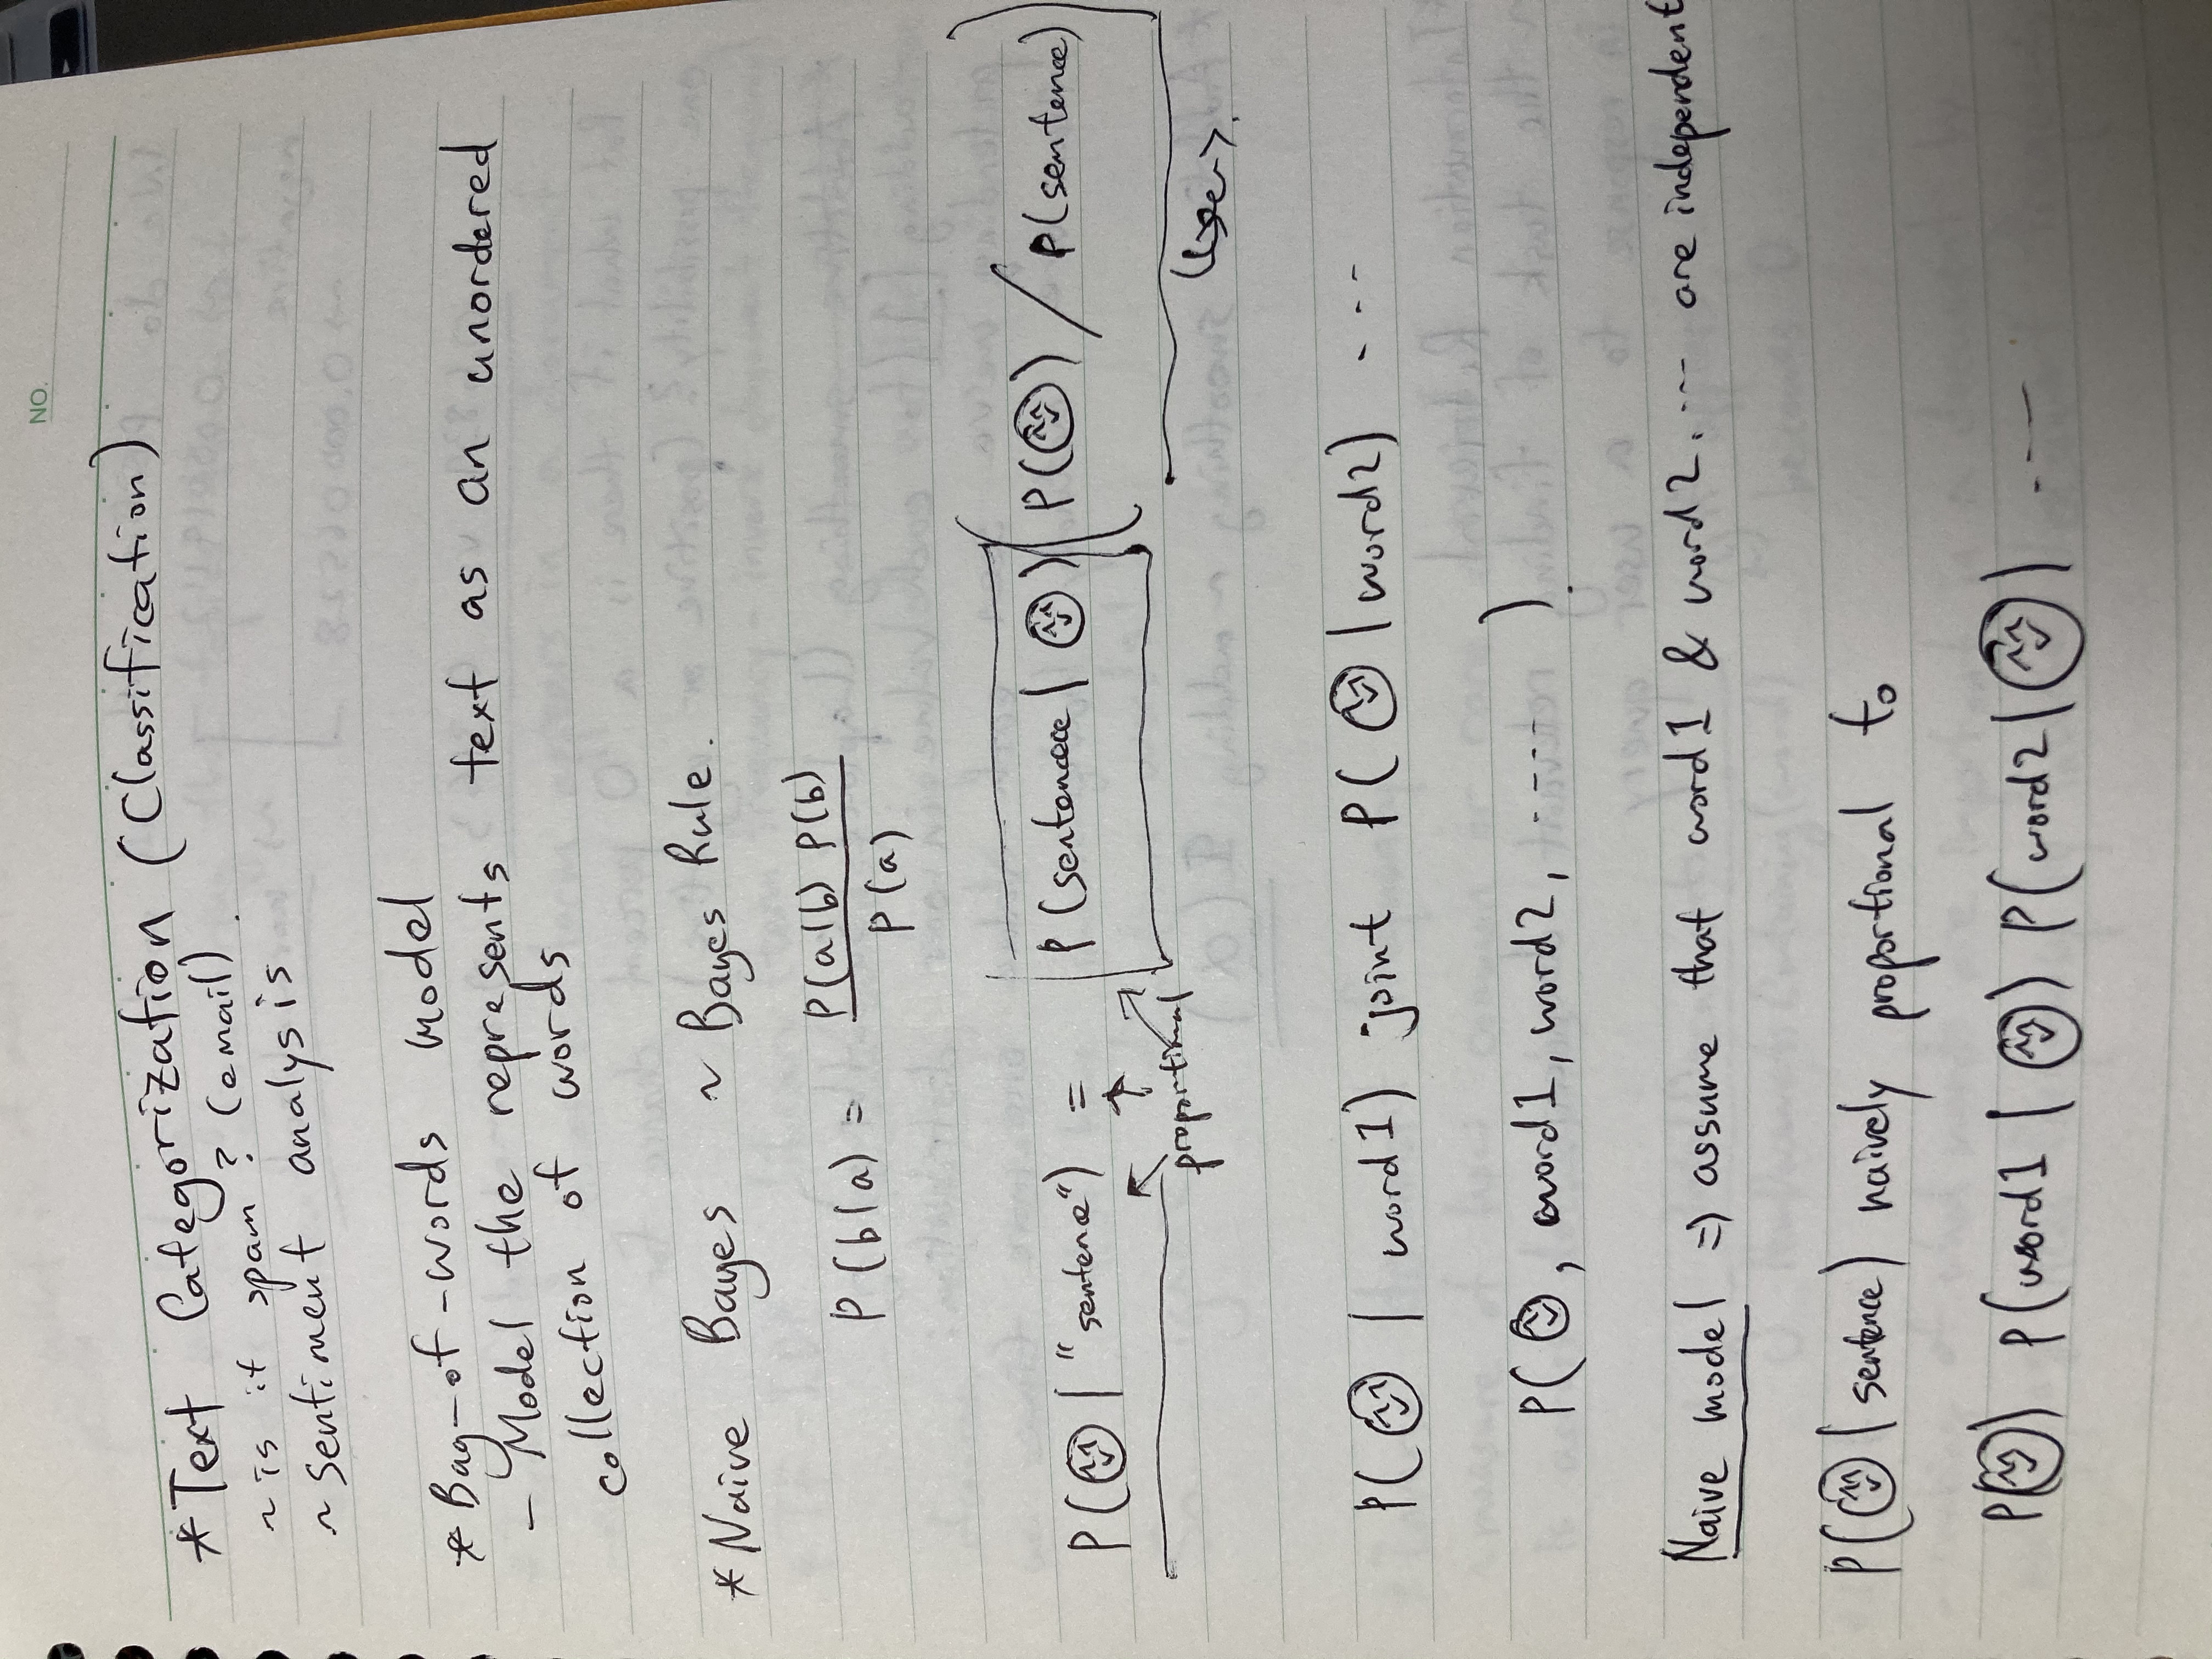 NO.
* Text Categorization (Classification)
~ is it spam? (email).
~ Sentiment analysis
* Bag-of-words model
- Model the represents text as an unordered
collection of words
* Naive Bayes ~ Bayes Rule.
P(b|a) = P(a|b) P(b)
P(a)
P(😊 | "sentence") = P(sentencece | 😊) (P(😊) / P(sentence))
proportional
P(😊 | word1) joint P(😊 | word2) ---
P(😊, word1, word2, ----- ).
Naive model => assume that word1 & word2, --- are independent
P(😊 | sentence) naively proportional to
P(😊) P(word1 | 😊) P(word2 | 😊) ----